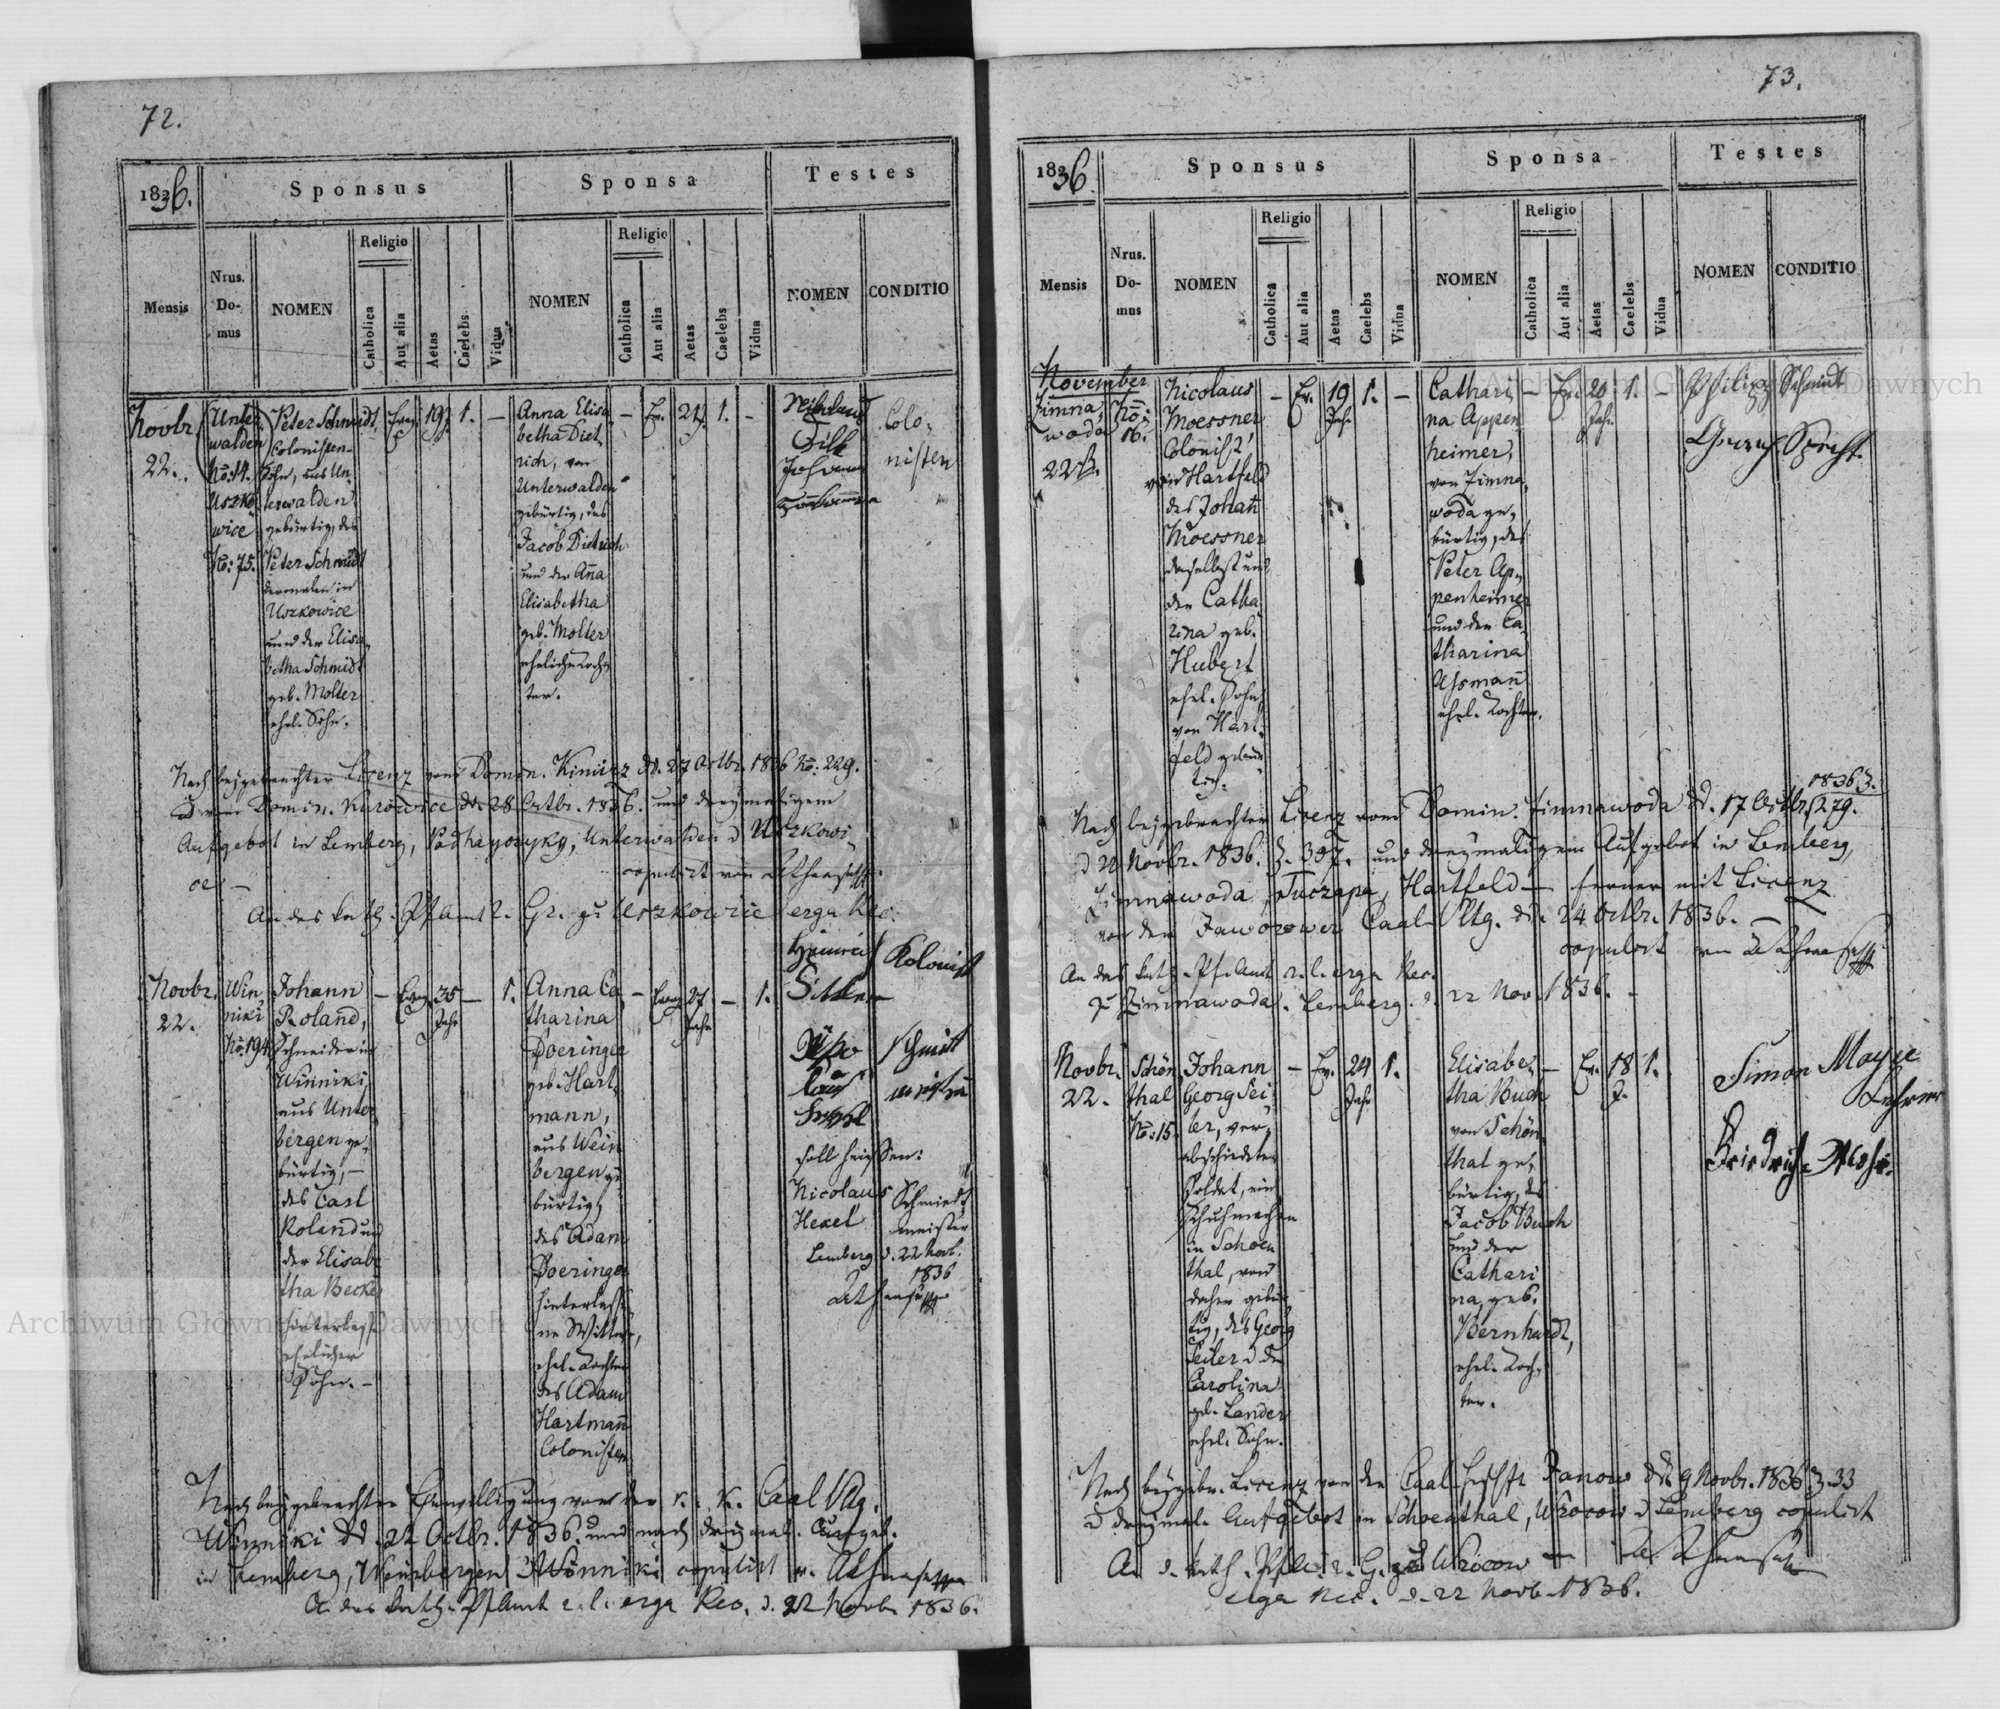 72.
1836.
Sponsus
Sponsa
Testes
Mensis
Nrus. Domus
NOMEN
Religio
Catholica
Aut alia
Aetas
Caelebs
Vidua
NOMEN
Religio
Catholica
Aut alia
Aetas
Caelebs
Vidua
NOMEN
CONDITIO
Novbr.
22.
Unter
walden
No: 14.
Uszko
wice
No: 75.
Peter Schmidt,
Colonisten-
Sohn, aus Un-
terwalden
gebürtig, des
Peter Schmidt
dermalen in
Uszkowice
und der Elisa-
betha Schmidt
geb. Molter
ehel. Sohn.
Evg.
19
1.
Anna Elisa-
betha Diet-
rich, von
Unterwalden
gebürtig, des
Jacob Dietrich
und der Anna
Elisabetha
geb. Molter
eheliche Toch-
ter.
Ev.
21
1.
Johann
Colo-
nisten
Nach beygebrachter Licenz vom Domin. Kiniirz dd. 27 Octbr. 1836 No: 229.
d vom Domin. Kurowice dd. 28 Octbr. 1836. und dreymaligem
Aufgebot in Lemberg, Podhayczyky, Unterwalden d Uszkowi-
ce. —
copulirt von
An das kath. Pfamt r. Gr. zu Uszkowice erga Rec.
Novbr.
22.
Win-
niki
No: 194.
Johann
Roland,
Schneider in
Winniki,
aus Unter-
bergen ge-
bürtig, —
des Carl
Roland und
der Elisabe
tha Becker
hinterlass.
ehelicher
Sohn. —
Evg.
35
Jahr
1.
Anna Ca-
tharina
Doeringer
geb. Hart-
mann,
aus Wein
bergen ge-
bürtig,
des Adam
Doeringer
hinterlasse-
ne Wittwe,
ehel. Tochter
des Adam
Hartmann
Colonisten
Evg.
27
Jahr
1.
Heinrich
Kolonist
Schmidt
soll heissen:
Nicolaus
Hexel
Schmiedt
meister
Lemberg d. 22 Novb.
1836
Nach beygebrachter Einwilligung von der k. k. Caal Vltg.
Winniki dd. 22 Octbr. 1836. und nach dreymal. Aufgeb.
in Lemberg, Weinbergen d Winniki copulirt v.
An das kath. Pfamt r. l. erga Rec. d. 22 Novbr 1836.
73.
1836.
Sponsus
Sponsa
Testes
Mensis
Nrus. Domus
NOMEN
Religio
Catholica
Aut alia
Aetas
Caelebs
Vidua
NOMEN
Religio
Catholica
Aut alia
Aetas
Caelebs
Vidua
NOMEN
CONDITIO
November
Zimna-
woda
22
No:
16.
Nicolaus
Moessner
Colonist,
von Hartfeld
des Johan
Moessner
daselbst und
der Catha
rina geb.
Hubert
ehel. Sohn
von Hart-
feld gebür
tig.
Ev.
19
Jahr
1.
Cathari-
na Appen
heimer,
von Zimna-
woda ge-
bürtig, des
Peter Ap-
penheimer
und der Ca-
tharina
Assmann
ehel. Tochter.
Ev.
20
Jahr
1.
Philipp Schmidt
Specht.
Nach beygebrachter Licenz vom Domin. Zimnawoda dd. 17 Octbr. 1836 Z. 279.
d 22 Novbr. 1836. Z. 307. und dreymaligem Aufgebot in Lemberg,
Zimnawoda, Tuczapa, Hartfeld — ferner mit Licenz
von der Jaworower Caal Vltg. dd. 24 Octbr. 1836. —
copulirt von
An das kath. Pfamt r. l. erga Rec.
z Zimnawoda. Lemberg. d. 22 Nov. 1836. —
Novbr.
22.
Schön
thal
No: 15.
Johann
Georg Sei-
ler, ver-
abschiedeter
Soldat, ein
Schuhmacher
in Schoen
thal, von
daher gebür
tig, des Georg
Seiler d der
Carolina
geb. Lander
ehel. Sohn.
Ev.
24
Jahr
1.
Elisabe-
tha Buch
von Schön
thal ge-
bürtig, des
Jacob Buch
und der
Cathari
na, geb.
Bernhardt,
ehel. Toch-
ter.
Ev.
18
J.
1.
Simon Mayer
Lehrer
Friedrich Mohr.
Nach beygebr. Licenz von der Caal Herschft Janow dd. 9 Novbr. 1836 Z. 33
d dreymal. Aufgebot in Schoenthal, Wrocow d Lemberg copulirt
An d. kath. Pfar. r. G. zu Wrocow —
erga Rec. d. 22 Novb. 1836.
Archiwum Główne Akt Dawnych
Archiwum Główne Akt Dawnych